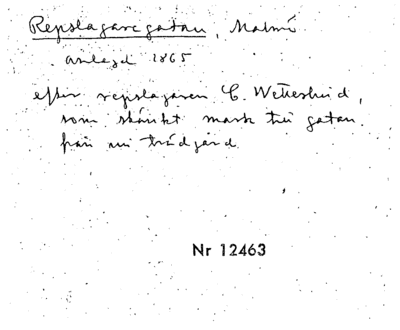 Repslagaregatan, Malmö
anlagd 1865
efter repslagaren C. Wetterlind,
som skänkt mark till gatan
från sin trädgård
Nr 12463